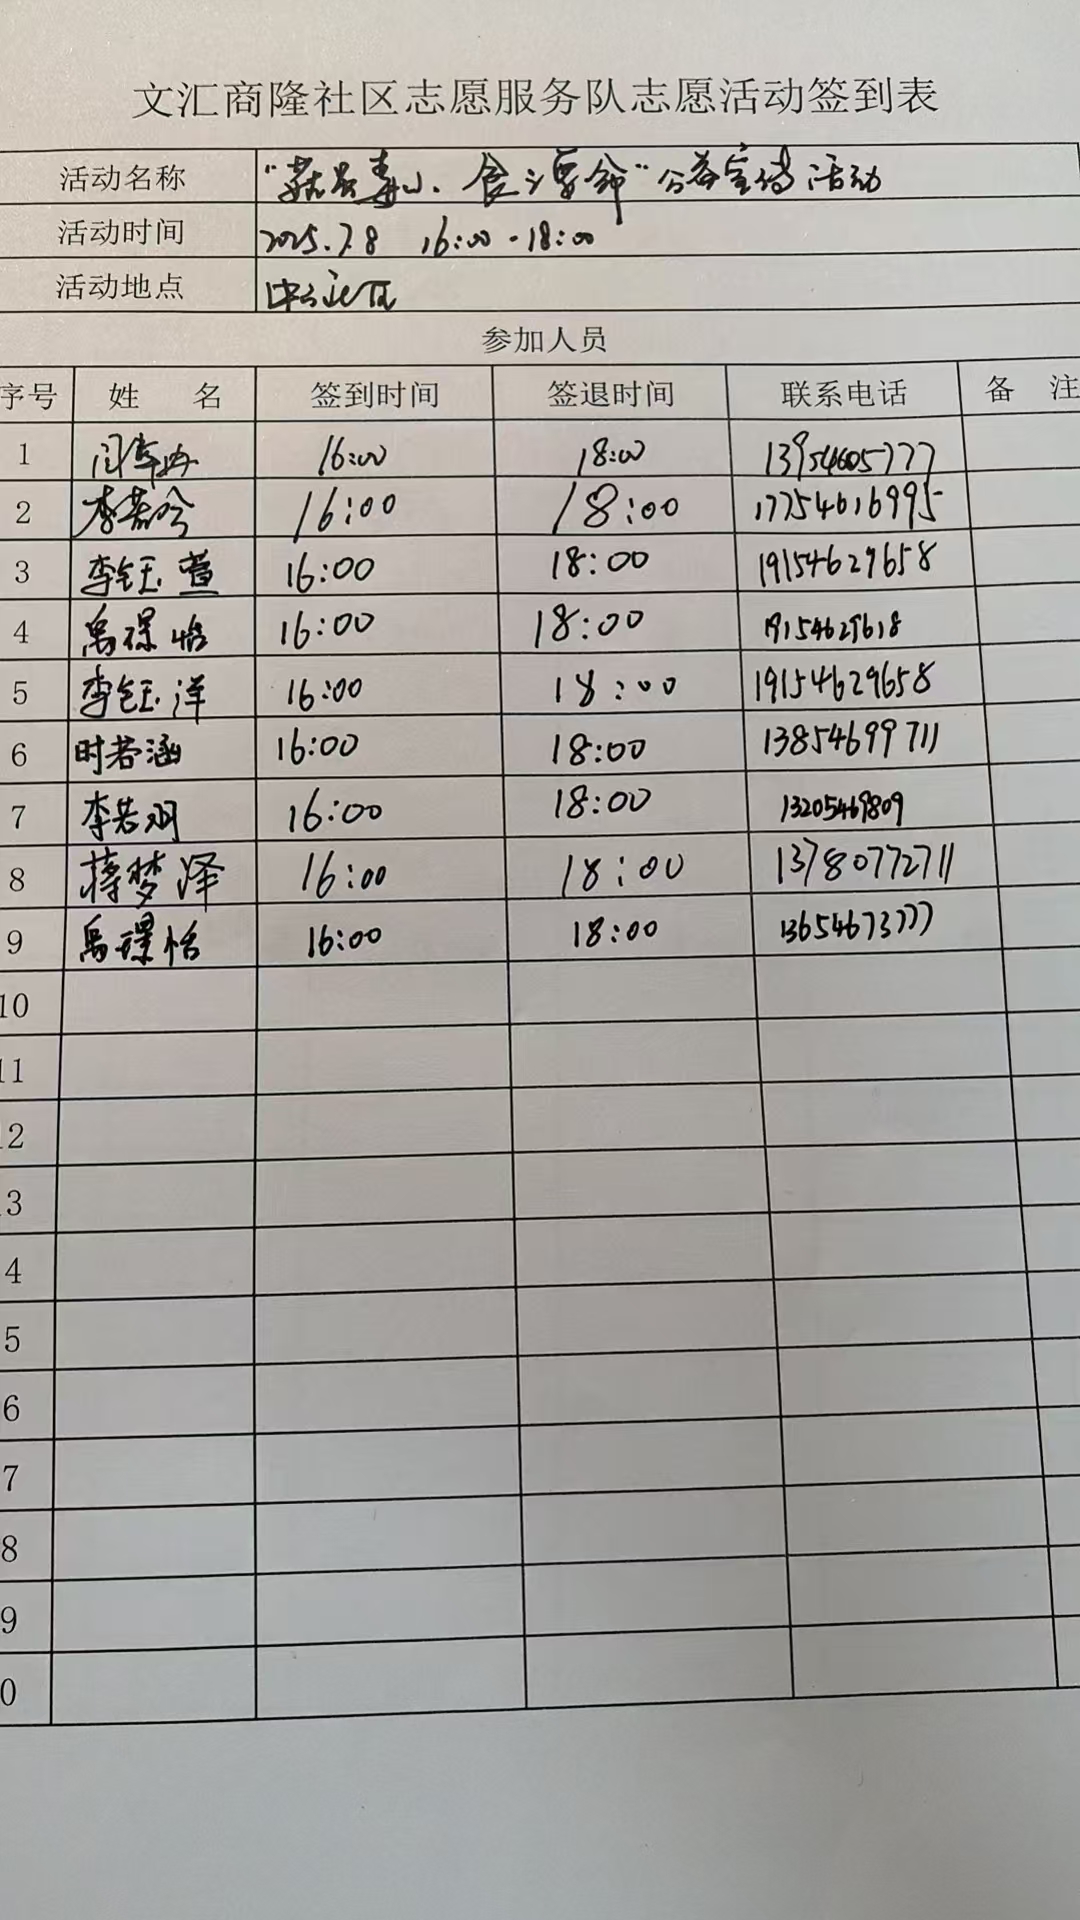 文汇商隆社区志愿服务队志愿活动签到表
活动名称 "菇虽毒小、食之要命"公益宣传活动
活动时间 2025.7.8 16:00-18:00
活动地点 中心社区
参加人员
序号 姓 名 签到时间 签退时间 联系电话 备 注
1 16:00 18:00 13954605777
2 李若 16:00 18:00 17754616995
3 李钰萱 16:00 18:00 19154629658
4 禹璟怡 16:00 18:00 19154629618
5 李钰洋 16:00 18:00 19154629658
6 时若涵 16:00 18:00 13854699711
7 李若明 16:00 18:00 13205469809
8 蒋梦泽 16:00 18:00 13780772711
9 禹璟怡 16:00 18:00 13654673777
10
11
12
3
4
5
6
7
8
9
0